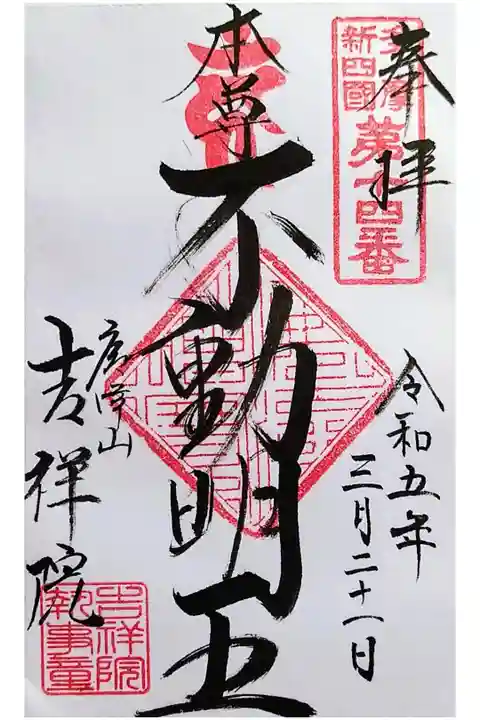 奉拝
多摩
新四國
第十四番
令和五年
三月二十一日
本尊
不動明王
吉祥院
吉祥院
執事章